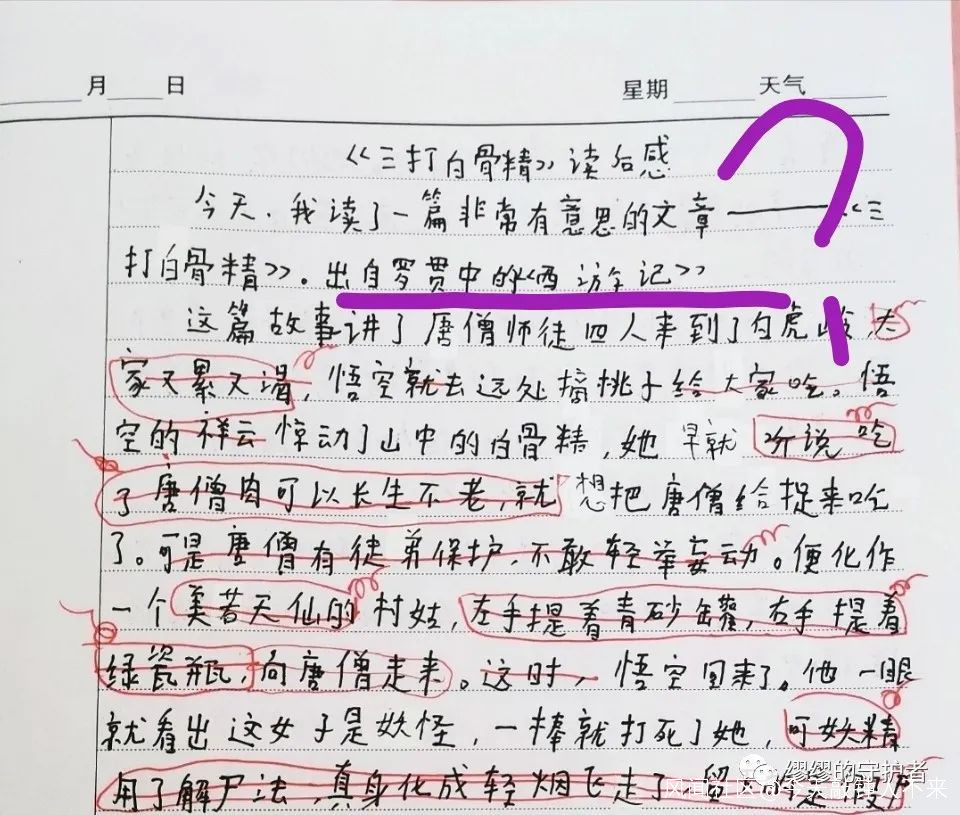 月 日 星期 天气
《三打白骨精》读后感
今天.我读了一篇非常有意思的文章——《三
打白骨精》.出自罗贯中的《西游记》
这篇故事讲了唐僧师徒四人来到了白虎岭,大
家又累又渴,悟空就去远处摘桃子给大家吃。悟
空的祥云惊动了山中的白骨精,她早就听说吃
了唐僧肉可以长生不老,就想把唐僧给捉来吃
了。可是唐僧有徒弟保护,不敢轻举妄动。便化作
一个美若天仙的村姑,左手提着青砂罐,右手提着
绿瓷瓶,向唐僧走来。这时,悟空回来了。他一眼
就看出这女子是妖怪,一棒就打死了她,可妖精
用了解尸法,真身化成轻烟飞走了
缪缪的守护者